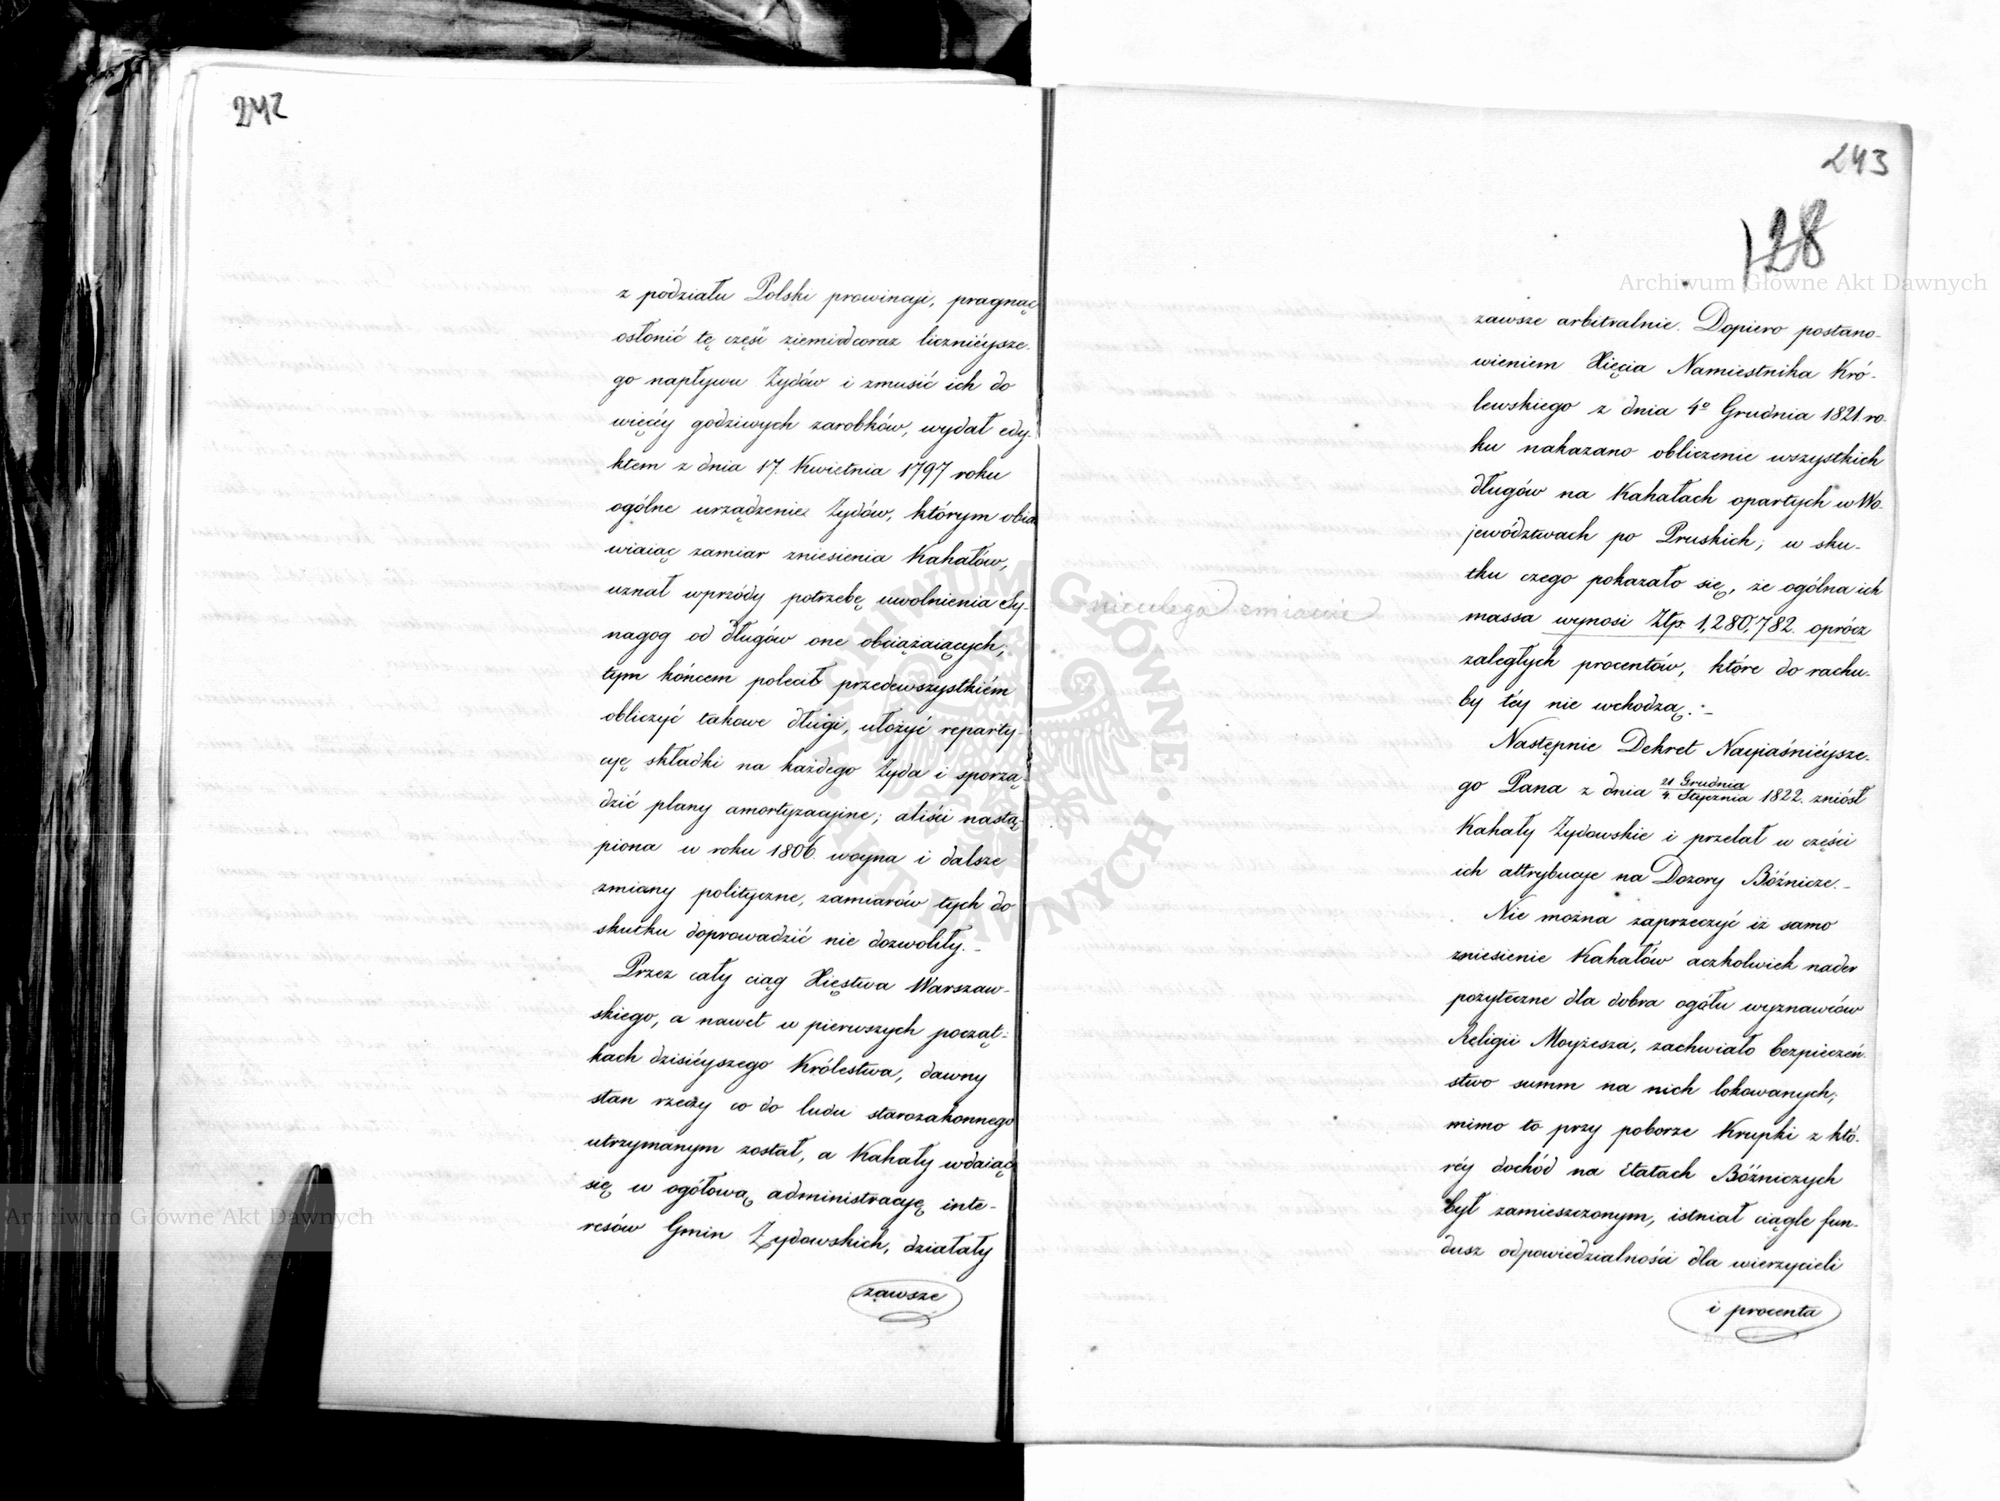 242
z podziału Polski prowincyi, pragnąc
osłonić tę część ziemi od coraz licznieysze-
go napływu Żydów i zmusić ich do
więcéy godziwych zarobków, wydał edy-
ktem z dnia 17. Kwietnia 1797 roku
ogólne urządzenie Żydów, którym obia
wiaiąc zamiar zniesienia Kahałów,
uznał wprzódy potrzebę uwolnienia Sy-
nagog od długów one obciążaiących;
tym końcem polecił przedewszystkiém
obliczyć takowe długi, ułożyć reparty-
cyę składki na każdego Żyda i sporzą-
dzić plany amortyzacyine; aliści nastą-
piona w roku 1806. woyna i dalsze
zmiany polityczne, zamiarów tych do
skutku doprowadzić nie dozwoliły. -
Przez cały ciąg Xięstwa Warszaw-
skiego, a nawet w pierwszych począt-
kach dzisiéyszego Królestwa, dawny
stan rzeczy co do ludu starozakonnego
utrzymanym został, a Kahały wdaiąc
się w ogółową administracyę inte-
resów Gmin Żydowskich, działały
zawsze
243
128
zawsze arbitralnie. Dopiero postano-
wieniem Xięcia Namiestnika Kró-
lewskiego z dnia 4º Grudnia 1821 ro-
ku nakazano obliczenie wszystkich
długów na Kahałach opartych w Wo-
jewództwach po Pruskich; w sku-
tku czego pokazało się, że ogólna ich
massa wynosi Złp. 1,280,782. oprócz
zaległych procentów, które do rachu-
by téy nie wchodzą. -
Następnie Dekret Nayiaśniéysze-
go Pana z dnia 21 Grudnia / 4. Stycznia 1822. zniósł
Kahały Żydowskie i przelał w części
ich attrybucye na Dozory Bóżnicze. -
Nie można zaprzeczyć iż samo
zniesienie Kahałów aczkolwiek nader
pożyteczne dla dobra ogółu wyznawców
Religii Moyżesza, zachwiało bezpieczeń-
stwo summ na nich lokowanych;
mimo to przy poborze Krupki z któ-
réy dochód na Etatach Bóżniczych
był zamieszczonym, istniał ciągle fun-
dusz odpowiedzialności dla wierzycieli
i procenta
nieulega zmianie
Archiwum Główne Akt Dawnych
Archiwum Główne Akt Dawnych
ARCHIWUM GŁÓWNE AKT DAWNYCH